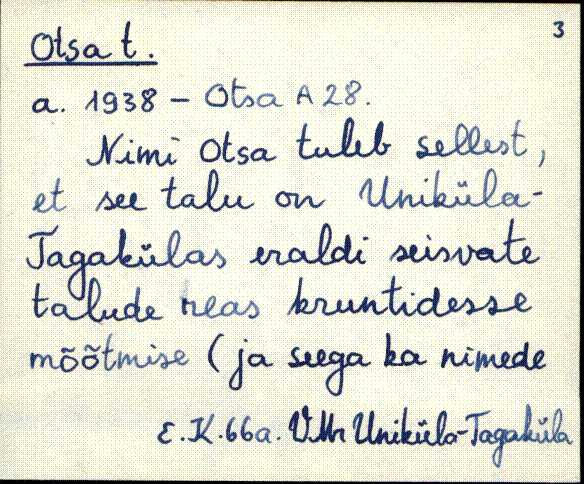 3
Otsa t.
a. 1938 – Otsa A 28.
Nimi Otsa tuleb sellest,
et see talu on Uniküla-
Tagakülas eraldi seisvate
talude reas kruntidesse
mõõtmise (ja seega ka nimede
E.K. 66a. V.Mr Uniküla-Tagaküla